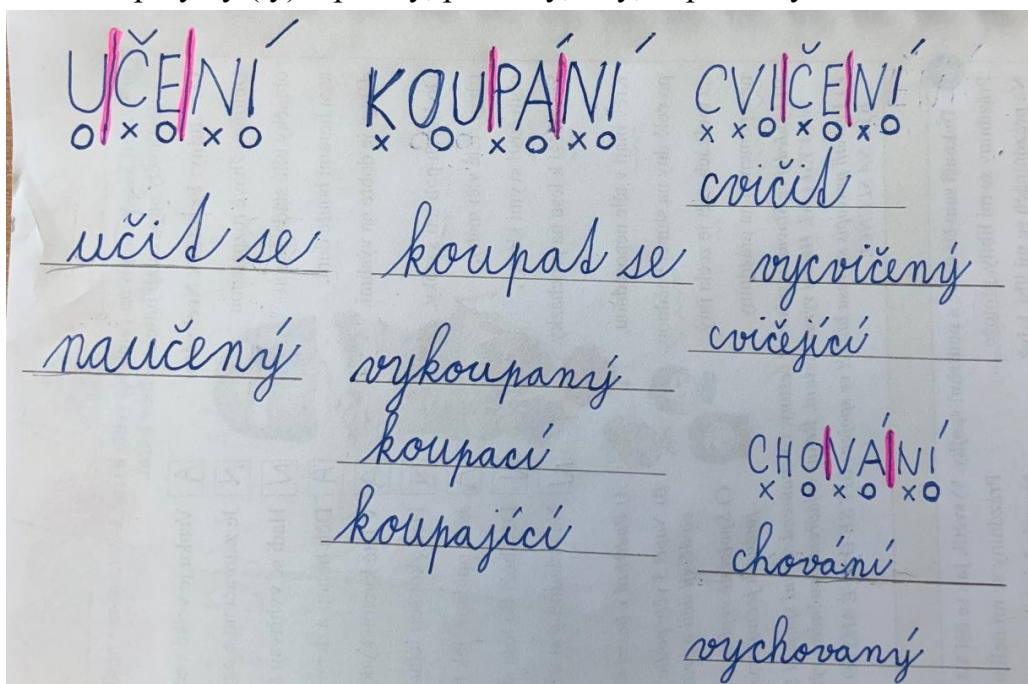 UČENÍ
učit se
naučený
KOUPÁNÍ
koupat se
vykoupaný
koupací
koupající
CVIČENÍ
cvičit
vycvičený
cvičějící
CHOVÁNÍ
chování
vychovaný